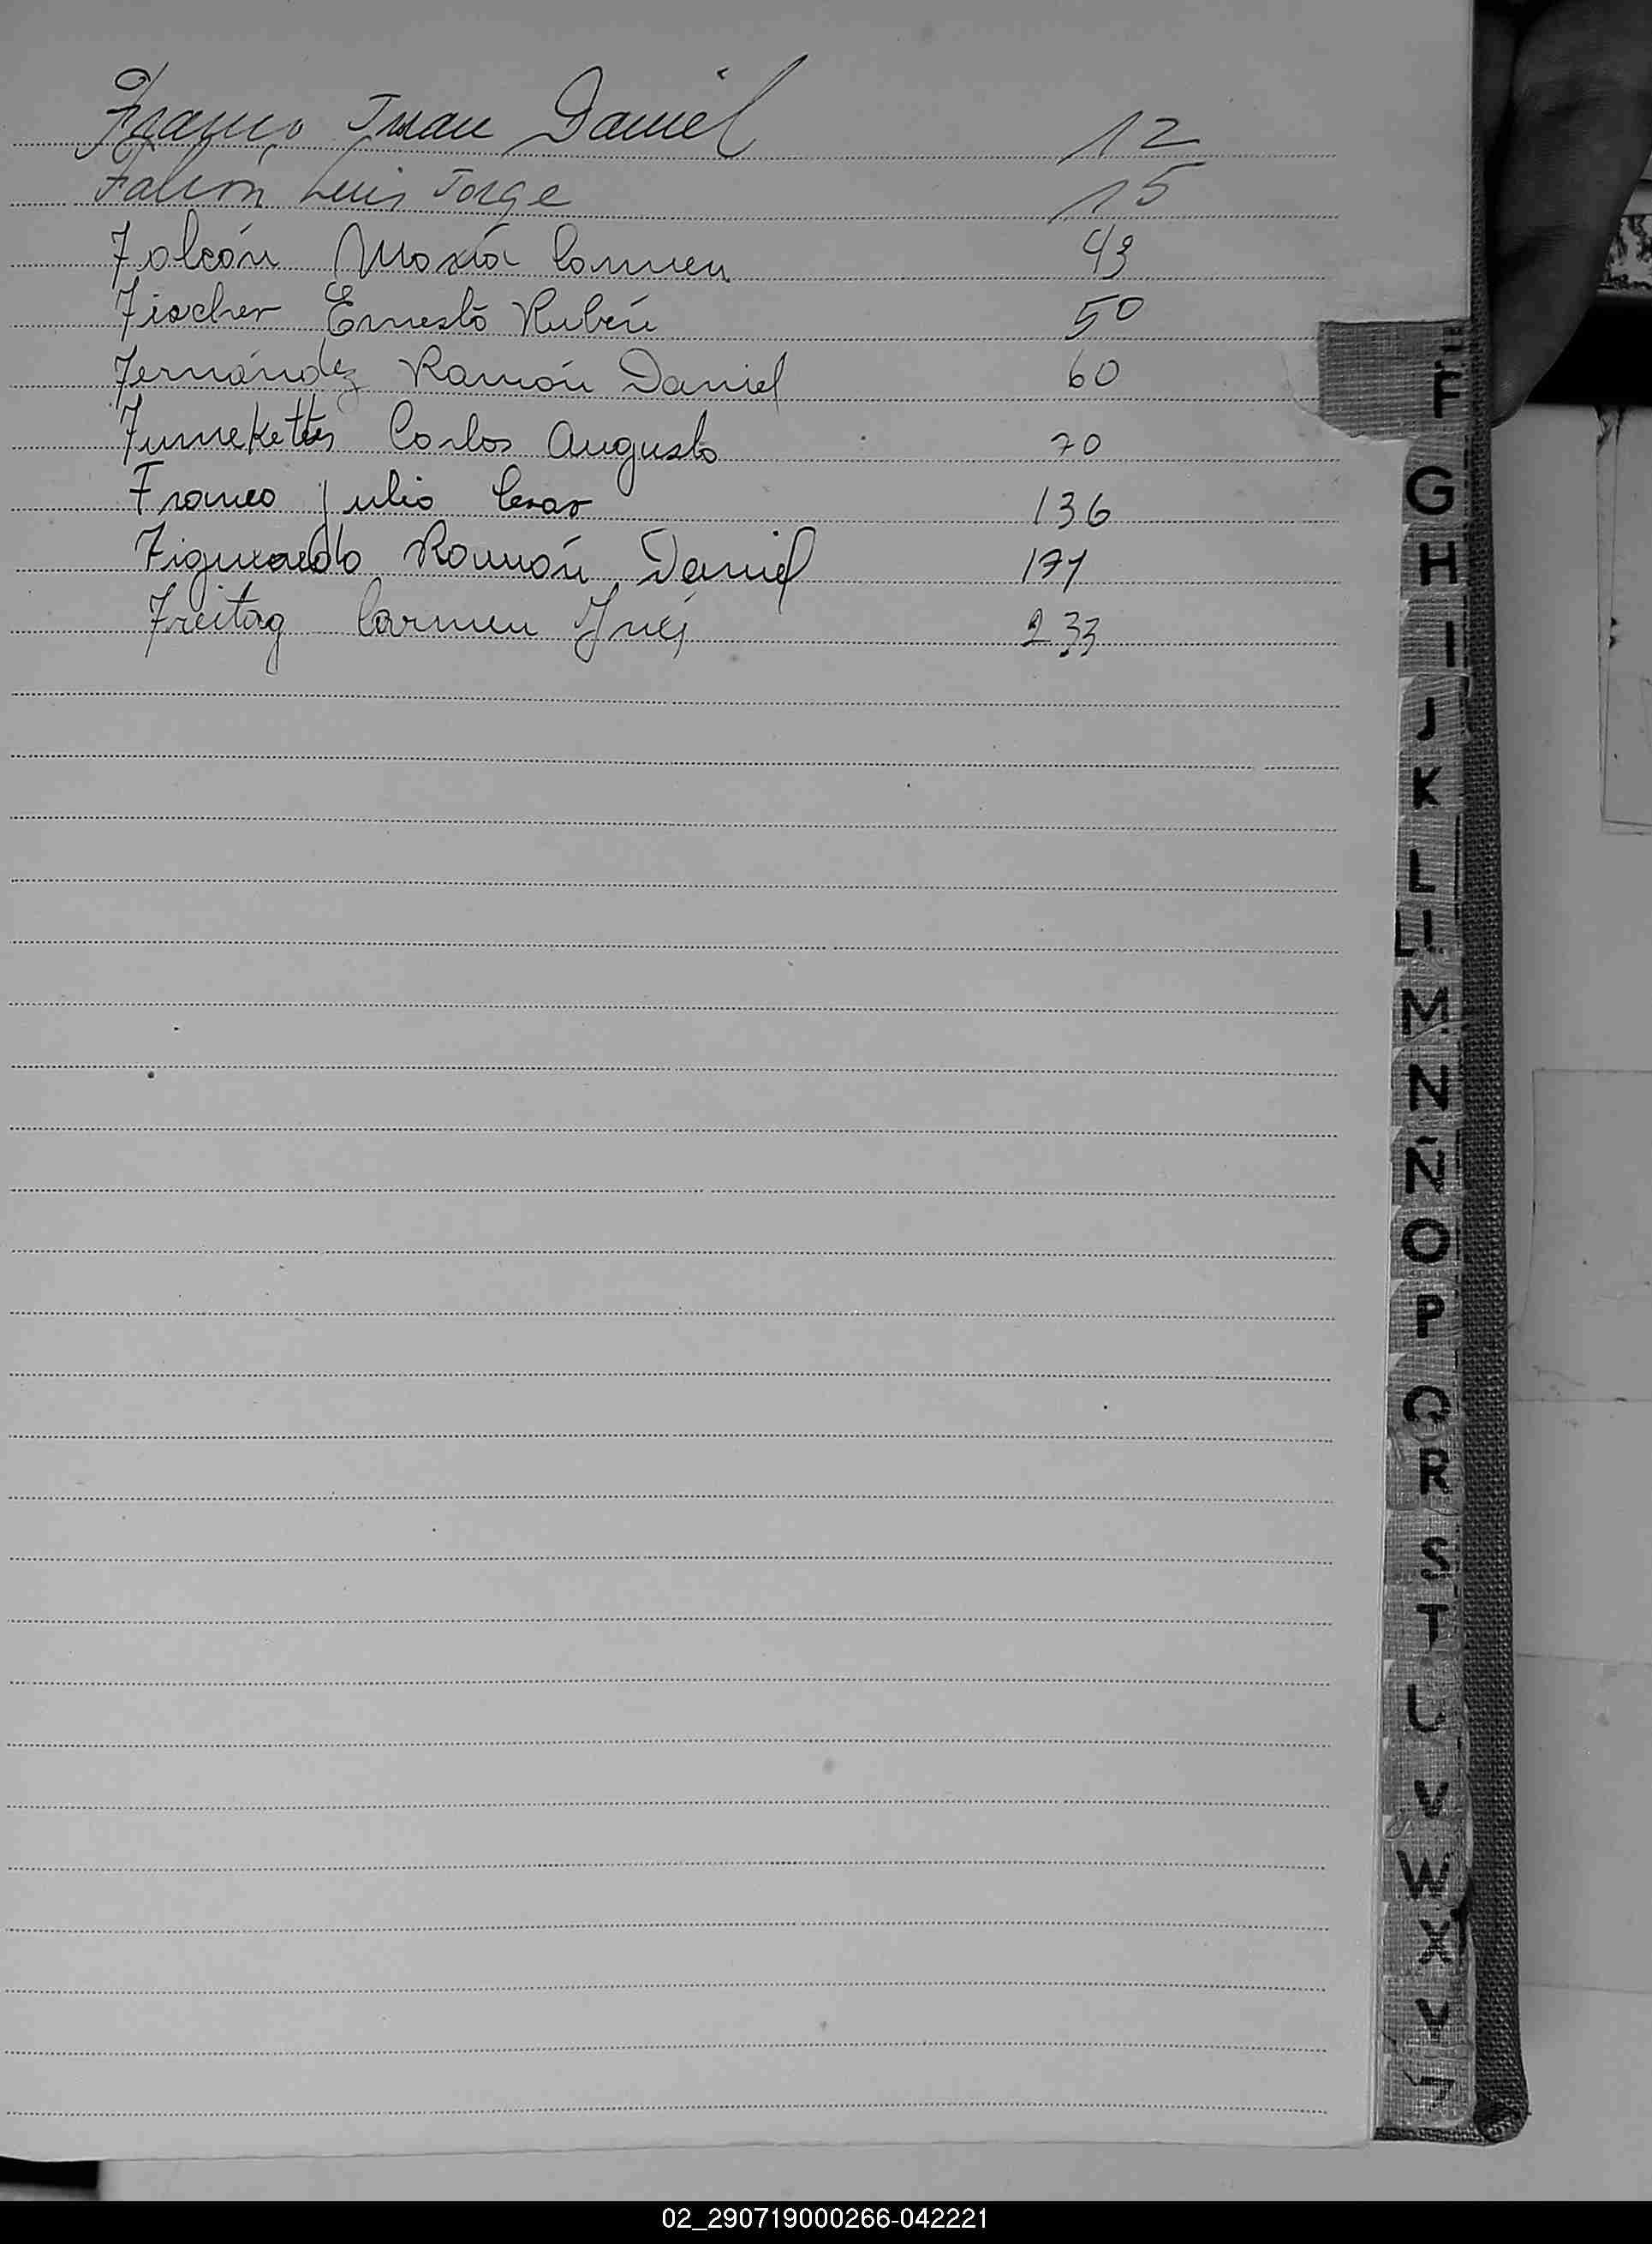 Juan Daniel 12
Falcón Luis Jorge 15
Falcón María Carmen 43
Fischer Ernesto Rubén 50
Fernández Ramón Daniel 60
Carlos Augusto 70
Franco Julio Cesar 136
Figueredo Ramón Daniel 171
Freitag Carmen Inés 233
F
G
H
I
J
K
L
LL
M
N
Ñ
O
P
Q
R
S
T
U
V
W
X
Y
Z
02_290719000266-042221